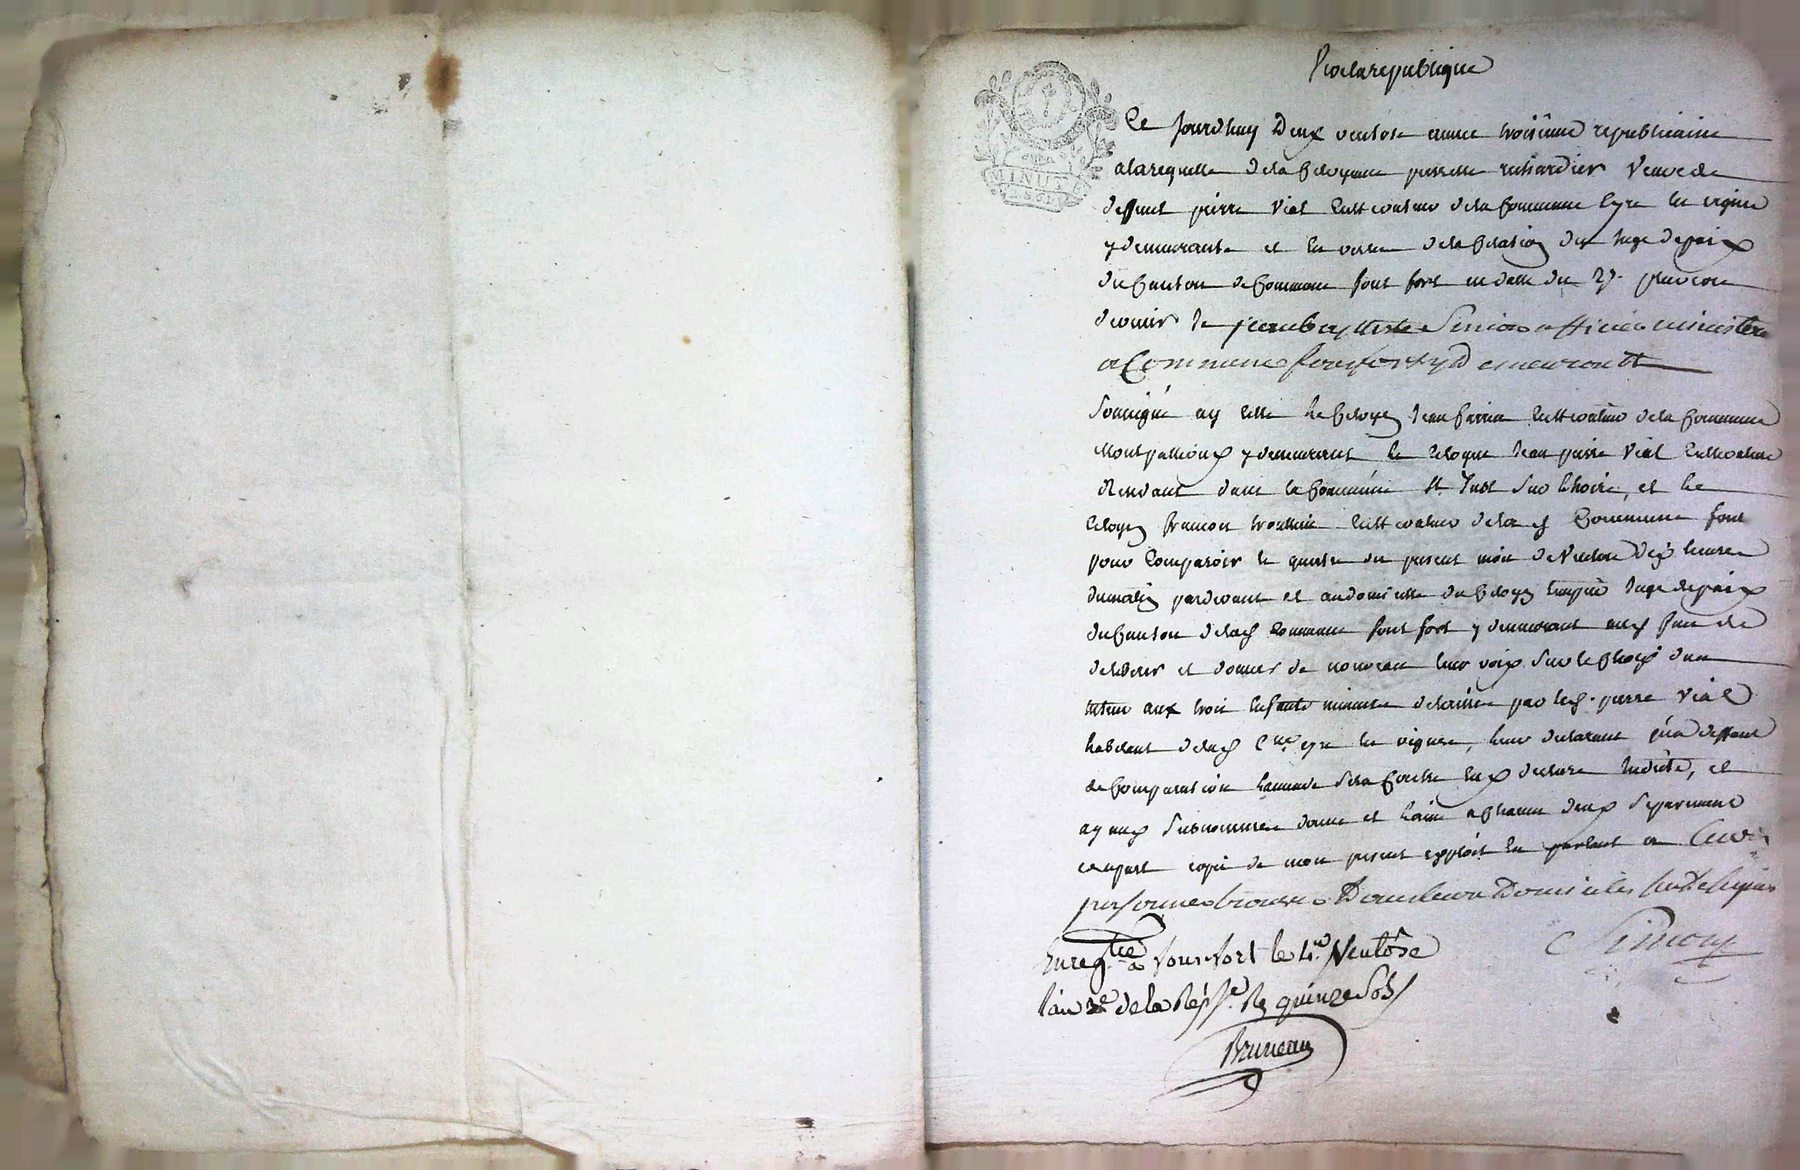 Vive la republique
MINUTE
Ce jourdhuy Deux ventose annee troisieme republicaine
a la requette de la Citoyenne pierrette richardier veuve de
deffunt pierre Vial cultivateur de la Commune Cyr les vignes
y demeurante et en vertu de la Cedule du Juge de paix
du Canton de Commune font fort en datte du pluviose
dernier Je jean baptiste Simion officier ministere
a Commune fontfort y Demeurantt
Soussigné ay cité le Citoyen Jean cultivateur de la Commune
y demeurant le citoyen Jean pierre Vial cultivateur
dans la Commune St Just Sur Loire, et le
citoyen cultivateur de la d Commune font
pour comparoir le quatre du present mois de Ventose dix heures
du matin pardevant et au domicille du Citoyen Juge de paix
du Canton de la d commune font fort y demeurant aux fins de
deliberer et donner de nouveau leur voix Sur le Choix dun
tuteur aux trois enfants mineurs delaissés par led. pierre Vial
habitant de lad Cne Cyr les vignes, leur declarant qua deffaut
de Comparution lamande Sera Contre eux declarée, et
ay aux Susnommes donné et laissé a Chacun deux Separement
copie de mon present exploit en parlant a leurs
personnes trouvés Dans leurs Domiciles
Simion
Enregtré a fonsfort le 4e. Ventôse
l'an 3e de la Répe. R quinze Sols
Bruneau